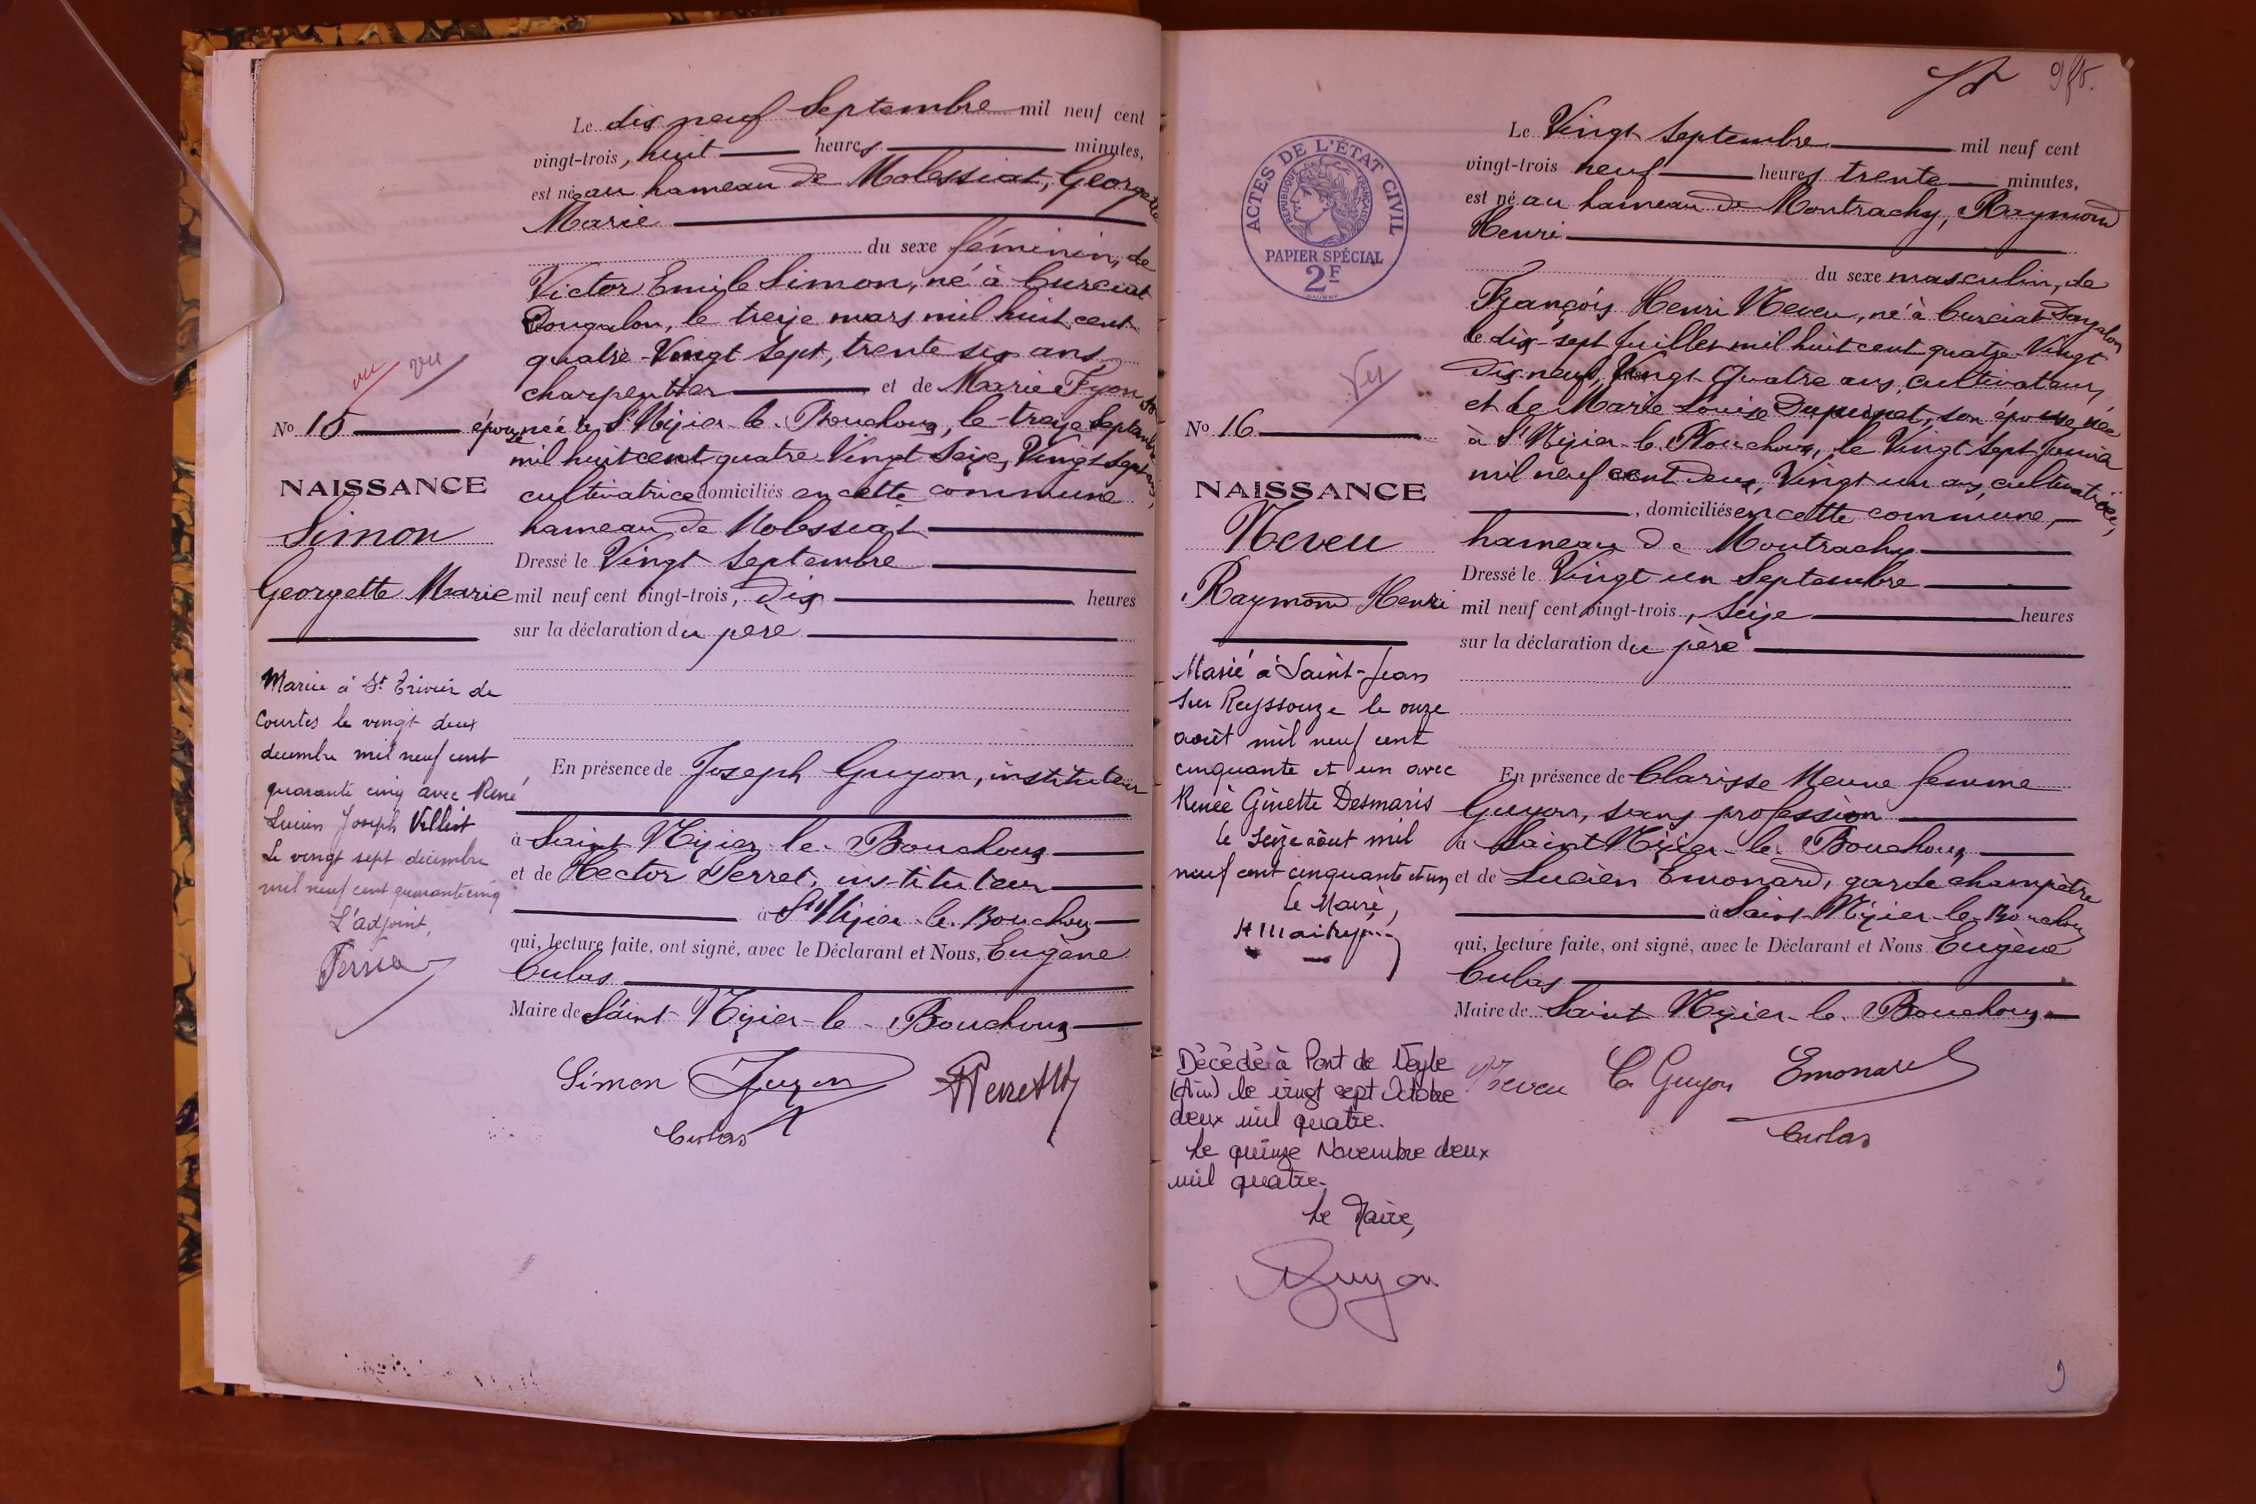 Le dix neuf Septembre mil neuf cent
vingt-trois, huit heures minutes,
est né au hameau de Molessiat, Georgette
Marie
du sexe féminin, de
Victor Emile Simon, né à Curciat
Dongalon, le treize mars mil huit cent
quatre Vingt Sept, trente six ans
charpentier et de Marie Fyon, son
épouse née à St Nizier-le-Bouchoux, le treize Septembre
mil huit cent quatre Vingt Seize, Vingt sept ans,
cultivatrice domiciliés en cette commune
hameau de Molessiat
Dressé le Vingt Septembre
mil neuf cent vingt-trois, dix heures
sur la déclaration du père
En présence de Joseph Guyon, instituteur
à Saint Nizier-le-Bouchoux
et de Hector Perret, instituteur
à St Nizier-le-Bouchoux
qui, lecture faite, ont signé, avec le Déclarant et Nous, Eugène
Culas
Maire de Saint Nizier-le-Bouchoux
Simon Guyon HPerret
Culas
vu vu
No 15
NAISSANCE
Simon
Georgette Marie
Mariée à St Trivier de
Courtes le vingt deux
décembre mil neuf cent
quarante cinq avec René
Lucien Joseph
Le vingt sept décembre
mil neuf cent quarante cinq
L'adjoint,
9
Le Vingt Septembre mil neuf cent
vingt-trois neuf heures trente minutes,
est né au hameau de Montrachy, Raymond
Henri
du sexe masculin, de
François Henri Neveu, né à Curciat-Dongalon
le dix-sept Juillet mil huit cent quatre-Vingt
Dix neuf, Vingt-Quatre ans, cultivateur,
et de Marie Louise Dupuinet, son épouse née
à St Nizier-le-Bouchoux, le Vingt Sept Janvier
mil neuf cent deux, Vingt un ans, cultivatrice,
, domiciliés en cette commune,
hameau de Montrachy
Dressé le Vingt un Septembre
mil neuf cent vingt-trois, seize heures
sur la déclaration du père
En présence de Clarisse femme
Guyon, sans profession
à Saint Nizier-le-Bouchoux
et de Lucien Emonard, garde champêtre
à Saint-Nizier-le-Bouchoux
qui, lecture faite, ont signé, avec le Déclarant et Nous Eugène
Culas
Maire de Saint Nizier-le-Bouchoux
Neveu C. Guyon Emonard
Culas
ACTES DE L'ÉTAT CIVIL
RÉPUBLIQUE FRANÇAISE
PAPIER SPÉCIAL
2F
Vu
No 16
NAISSANCE
Neveu
Raymond Henri
Marié à Saint-Jean
sur Reyssouze le onze
août mil neuf cent
cinquante et un avec
Renée Ginette Desmaris
le seize août mil
neuf cent cinquante et un
Le Maire,
Décédé à Pont de Veyle
(Ain) le vingt sept Octobre
deux mil quatre.
Le quinze Novembre deux
mil quatre.
Le Maire,
Guyon
9